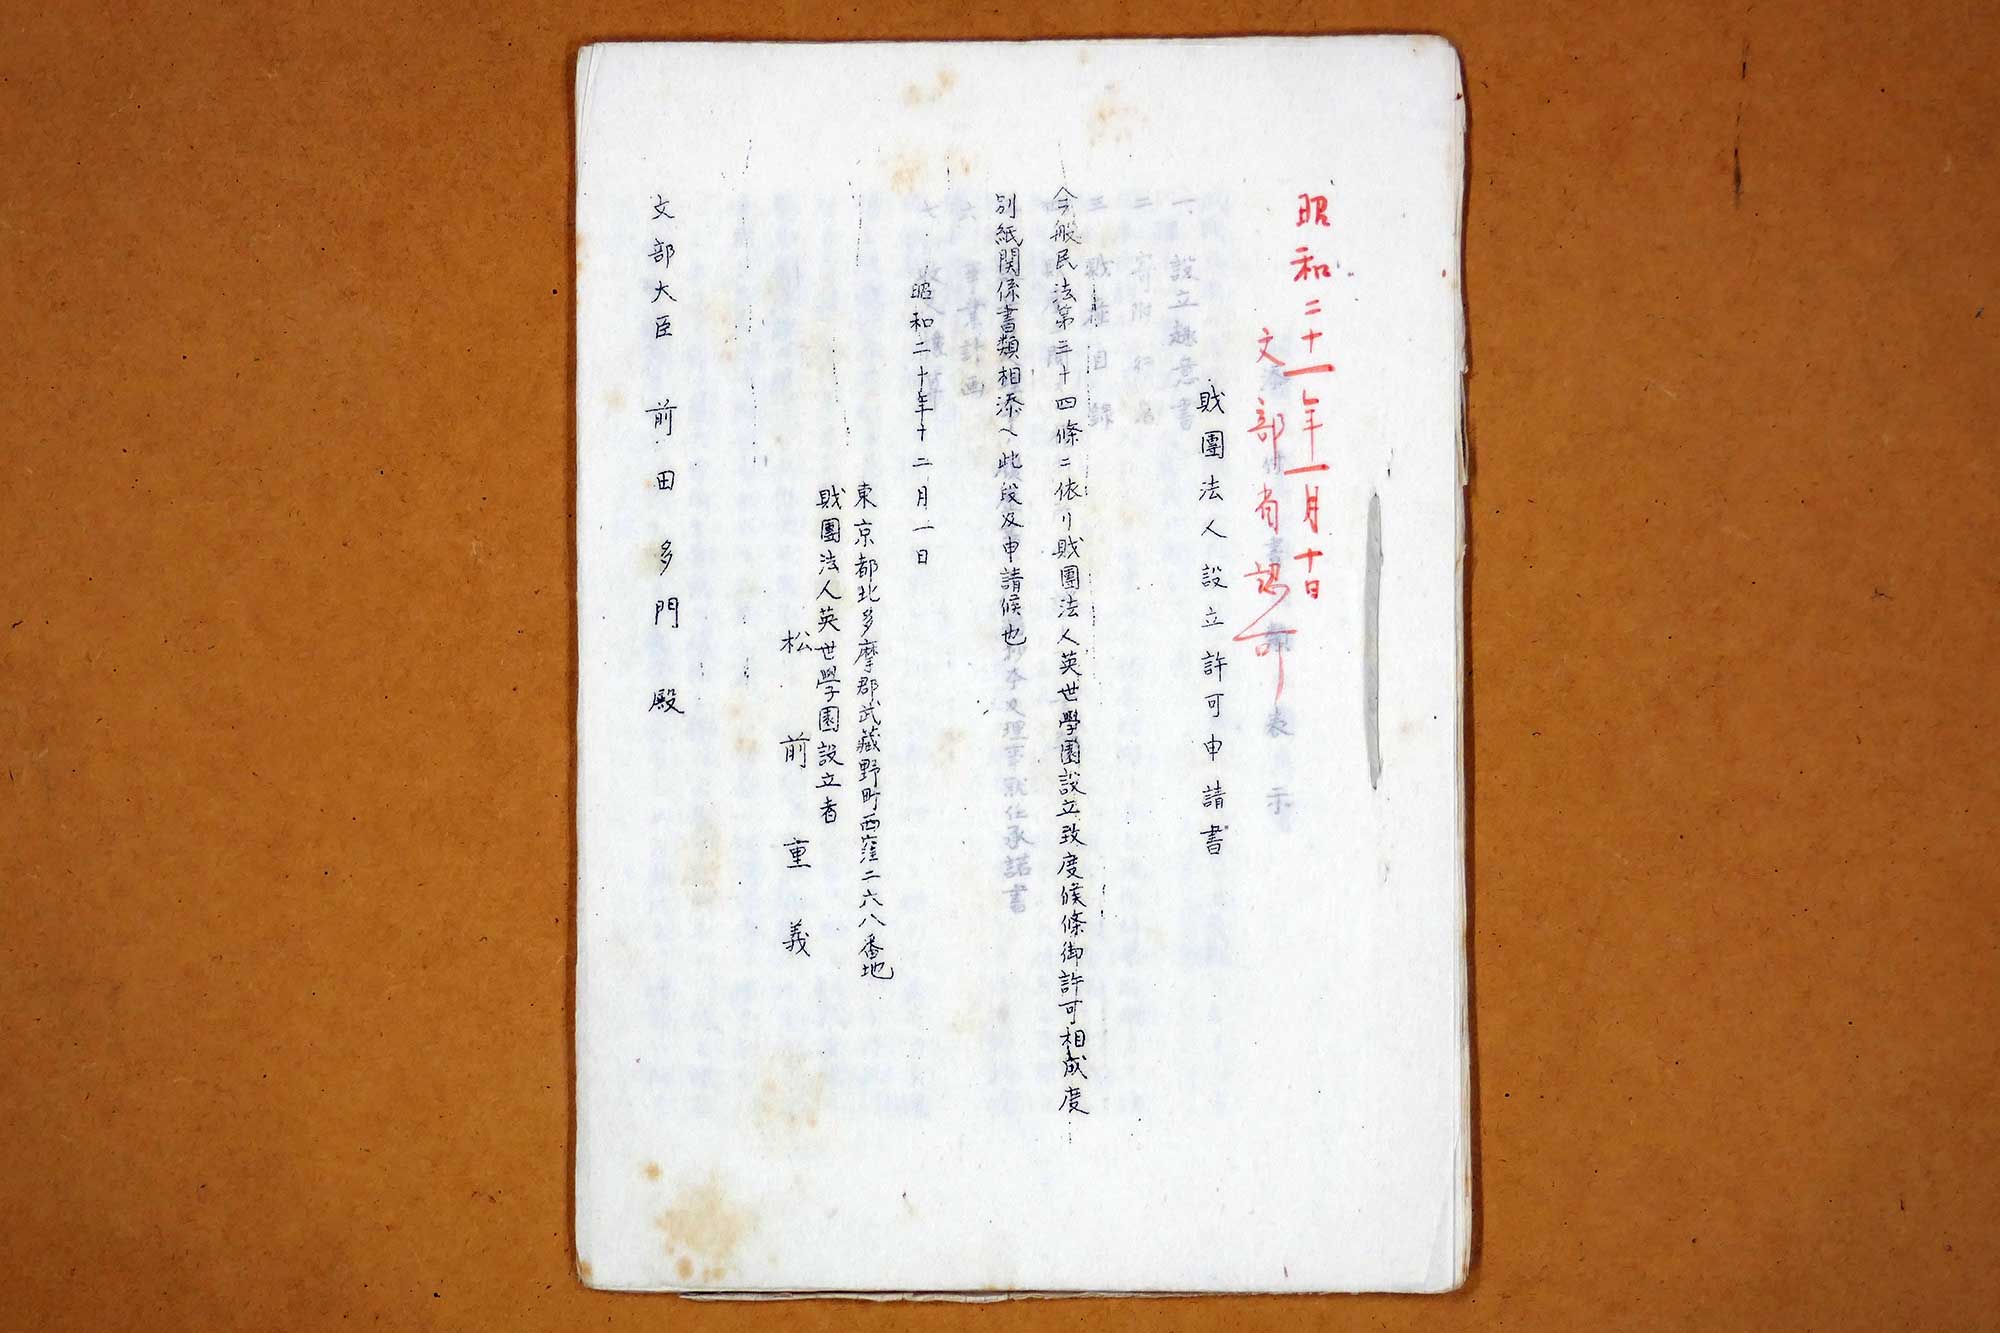 昭和二十一年一月十日
文部省認可
財團法人設立許可申請書
今般民法第三十四條ニ依リ財團法人英世學園設立致度候條御許可相成度
別紙関係書類相添ヘ此段及申請候也
昭和二十年十二月一日
東京都北多摩郡武藏野町西窪二六八番地
財團法人英世學園設立者
松前重義
文部大臣 前田多門殿